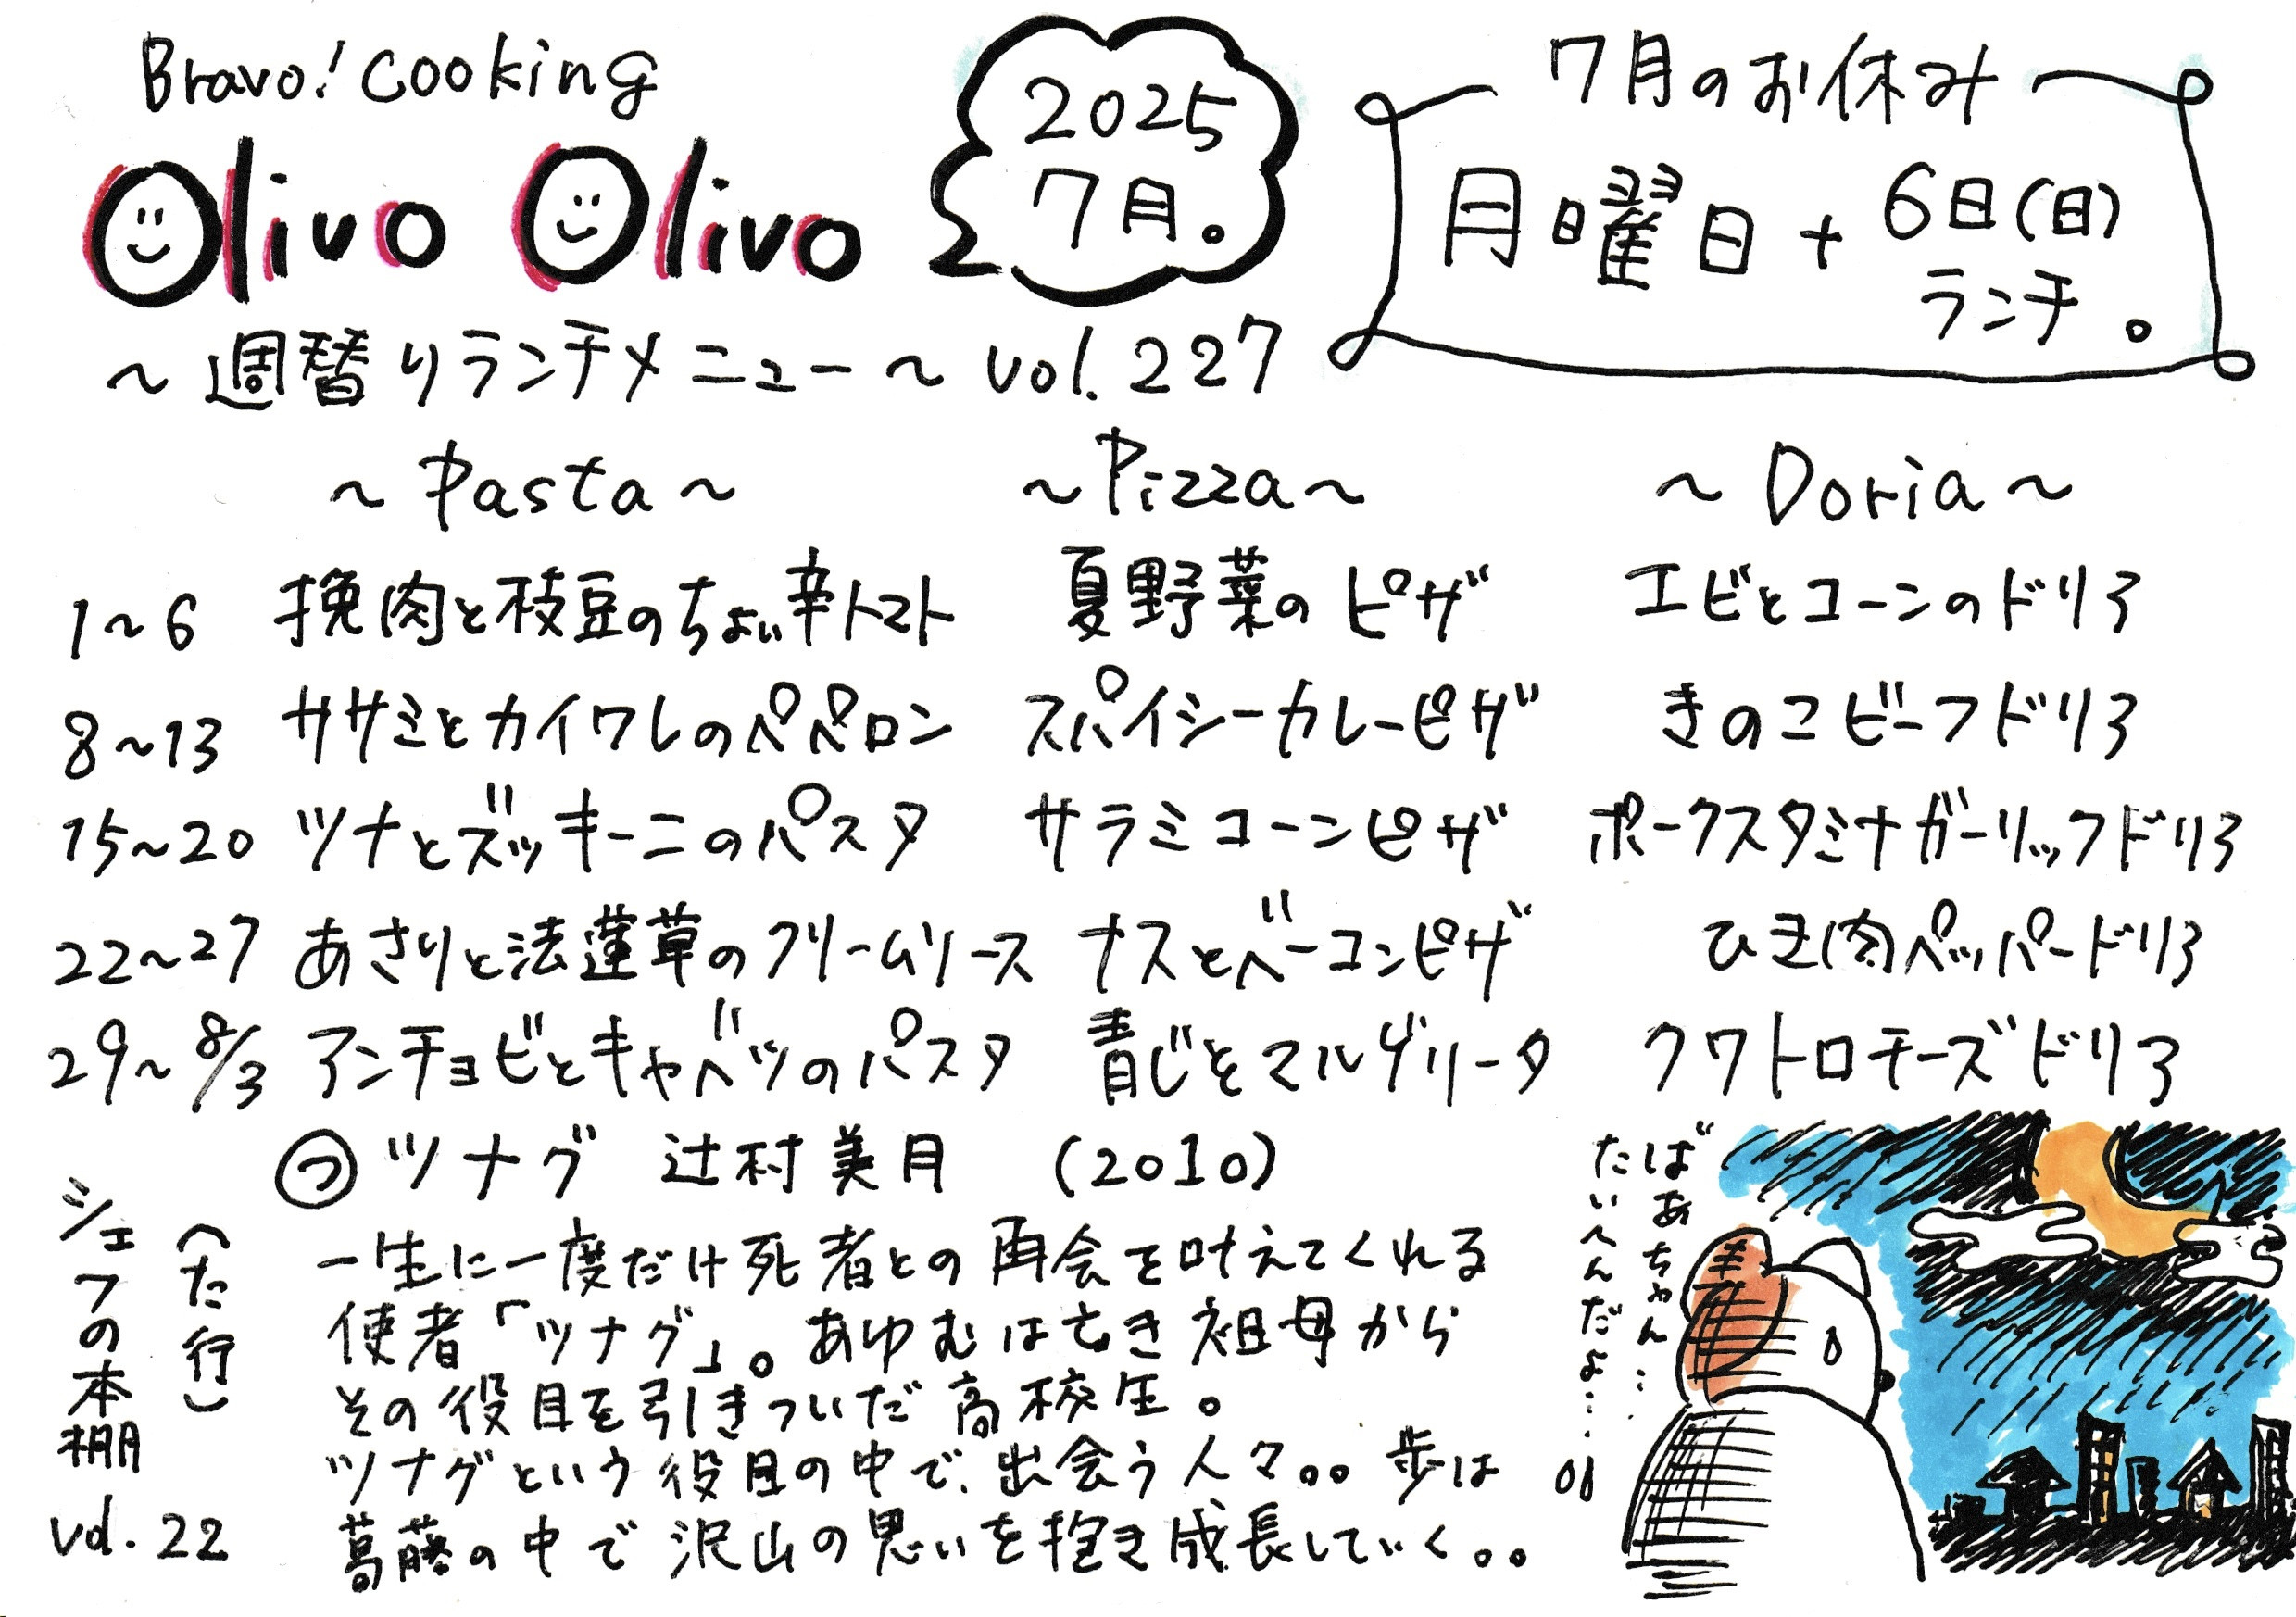 Bravo! Cooking
Olivo Olivo
2025
7月。
7月のお休み
月曜日+6日(日)
ランチ。
~週替りランチメニュー~ vol.227
~Pasta~ ~Pizza~ ~Doria~
1~6 挽肉と枝豆のちょい辛トマト 夏野菜のピザ エビとコーンのドリア
8~13 ササミとカイワレのペペロン スパイシーカレーピザ きのこビーフドリア
15~20 ツナとズッキーニのパスタ サラミコーンピザ ポークスタミナガーリックドリア
22~27 あさりと法蓮草のクリームソース ナスとベーコンピザ ひき肉ペッパードリア
29~8/3 アンチョビとキャベツのパスタ 青じそマルゲリータ クワトロチーズドリア
シェフの本棚
(た行)
vol.22
つ ツナグ 辻村美月 (2010)
一生に一度だけ死者との再会を叶えてくれる
使者「ツナグ」。あゆむは亡き祖母から
その役目を引きついだ高校生。
ツナグという役目の中で、出会う人々。。歩は
葛藤の中で沢山の思いを抱き成長していく。。
ばあちゃん…
たいへんだよ…